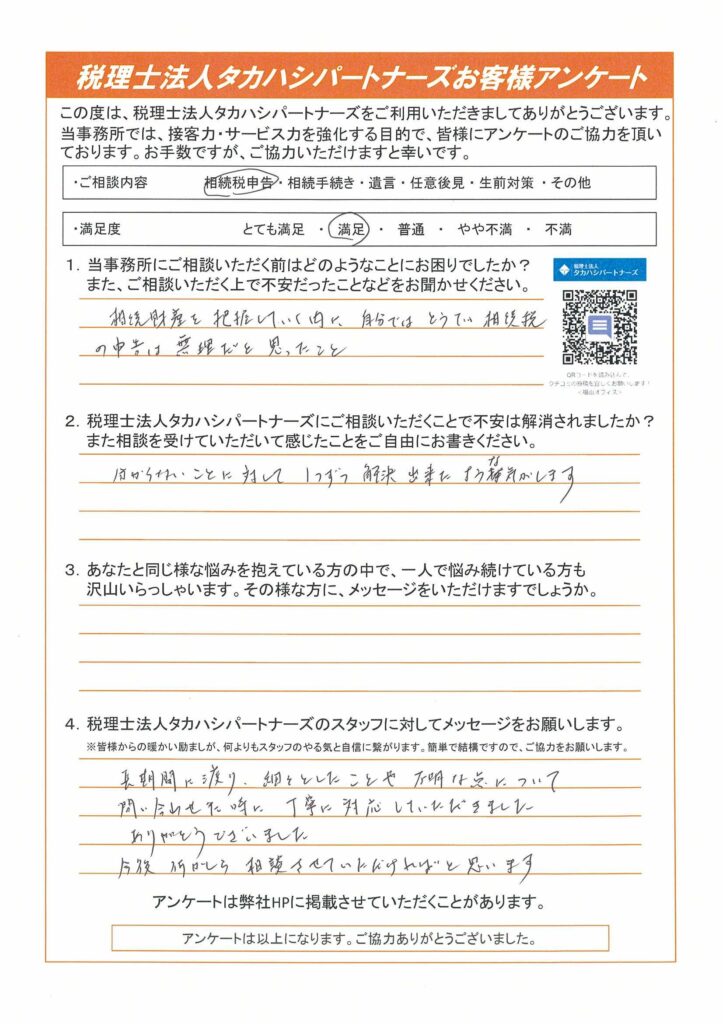 税理士法人タカハシパートナーズお客様アンケート
この度は、税理士法人タカハシパートナーズをご利用いただきましてありがとうございます。
当事務所では、接客力・サービス力を強化する目的で、皆様にアンケートのご協力を頂い
ております。お手数ですが、ご協力いただけますと幸いです。
・ご相談内容 相続税申告・相続手続き・遺言・任意後見・生前対策・その他
・満足度 とても満足 ・ 満足 ・ 普通 ・ やや不満 ・ 不満
1. 当事務所にご相談いただく前はどのようなことにお困りでしたか?
また、ご相談いただく上で不安だったことなどをお聞かせください。
税理士法人
タカハシパートナーズ
相続財産を把握していく内に、自分ではとうてい相続税
の申告は無理だと思ったこと
QRコードを読み込んで、
クチコミの投稿を宜しくお願いします!
<福山オフィス>
2. 税理士法人タカハシパートナーズにご相談いただくことで不安は解消されましたか?
また相談を受けていただいて感じたことをご自由にお書きください。
分からないことに対して1つずつ解決出来たような気がします
3. あなたと同じ様な悩みを抱えている方の中で、一人で悩み続けている方も
沢山いらっしゃいます。その様な方に、メッセージをいただけますでしょうか。
4. 税理士法人タカハシパートナーズのスタッフに対してメッセージをお願いします。
※皆様からの暖かい励ましが、何よりもスタッフのやる気と自信に繋がります。簡単で結構ですので、ご協力をお願いします。
長期間に渡り、細々としたことや不明な点について
問い合わせた時に丁寧に対応していただきました
ありがとうございました
今後何かしら相談させていただければと思います
アンケートは弊社HPに掲載させていただくことがあります。
アンケートは以上になります。ご協力ありがとうございました。